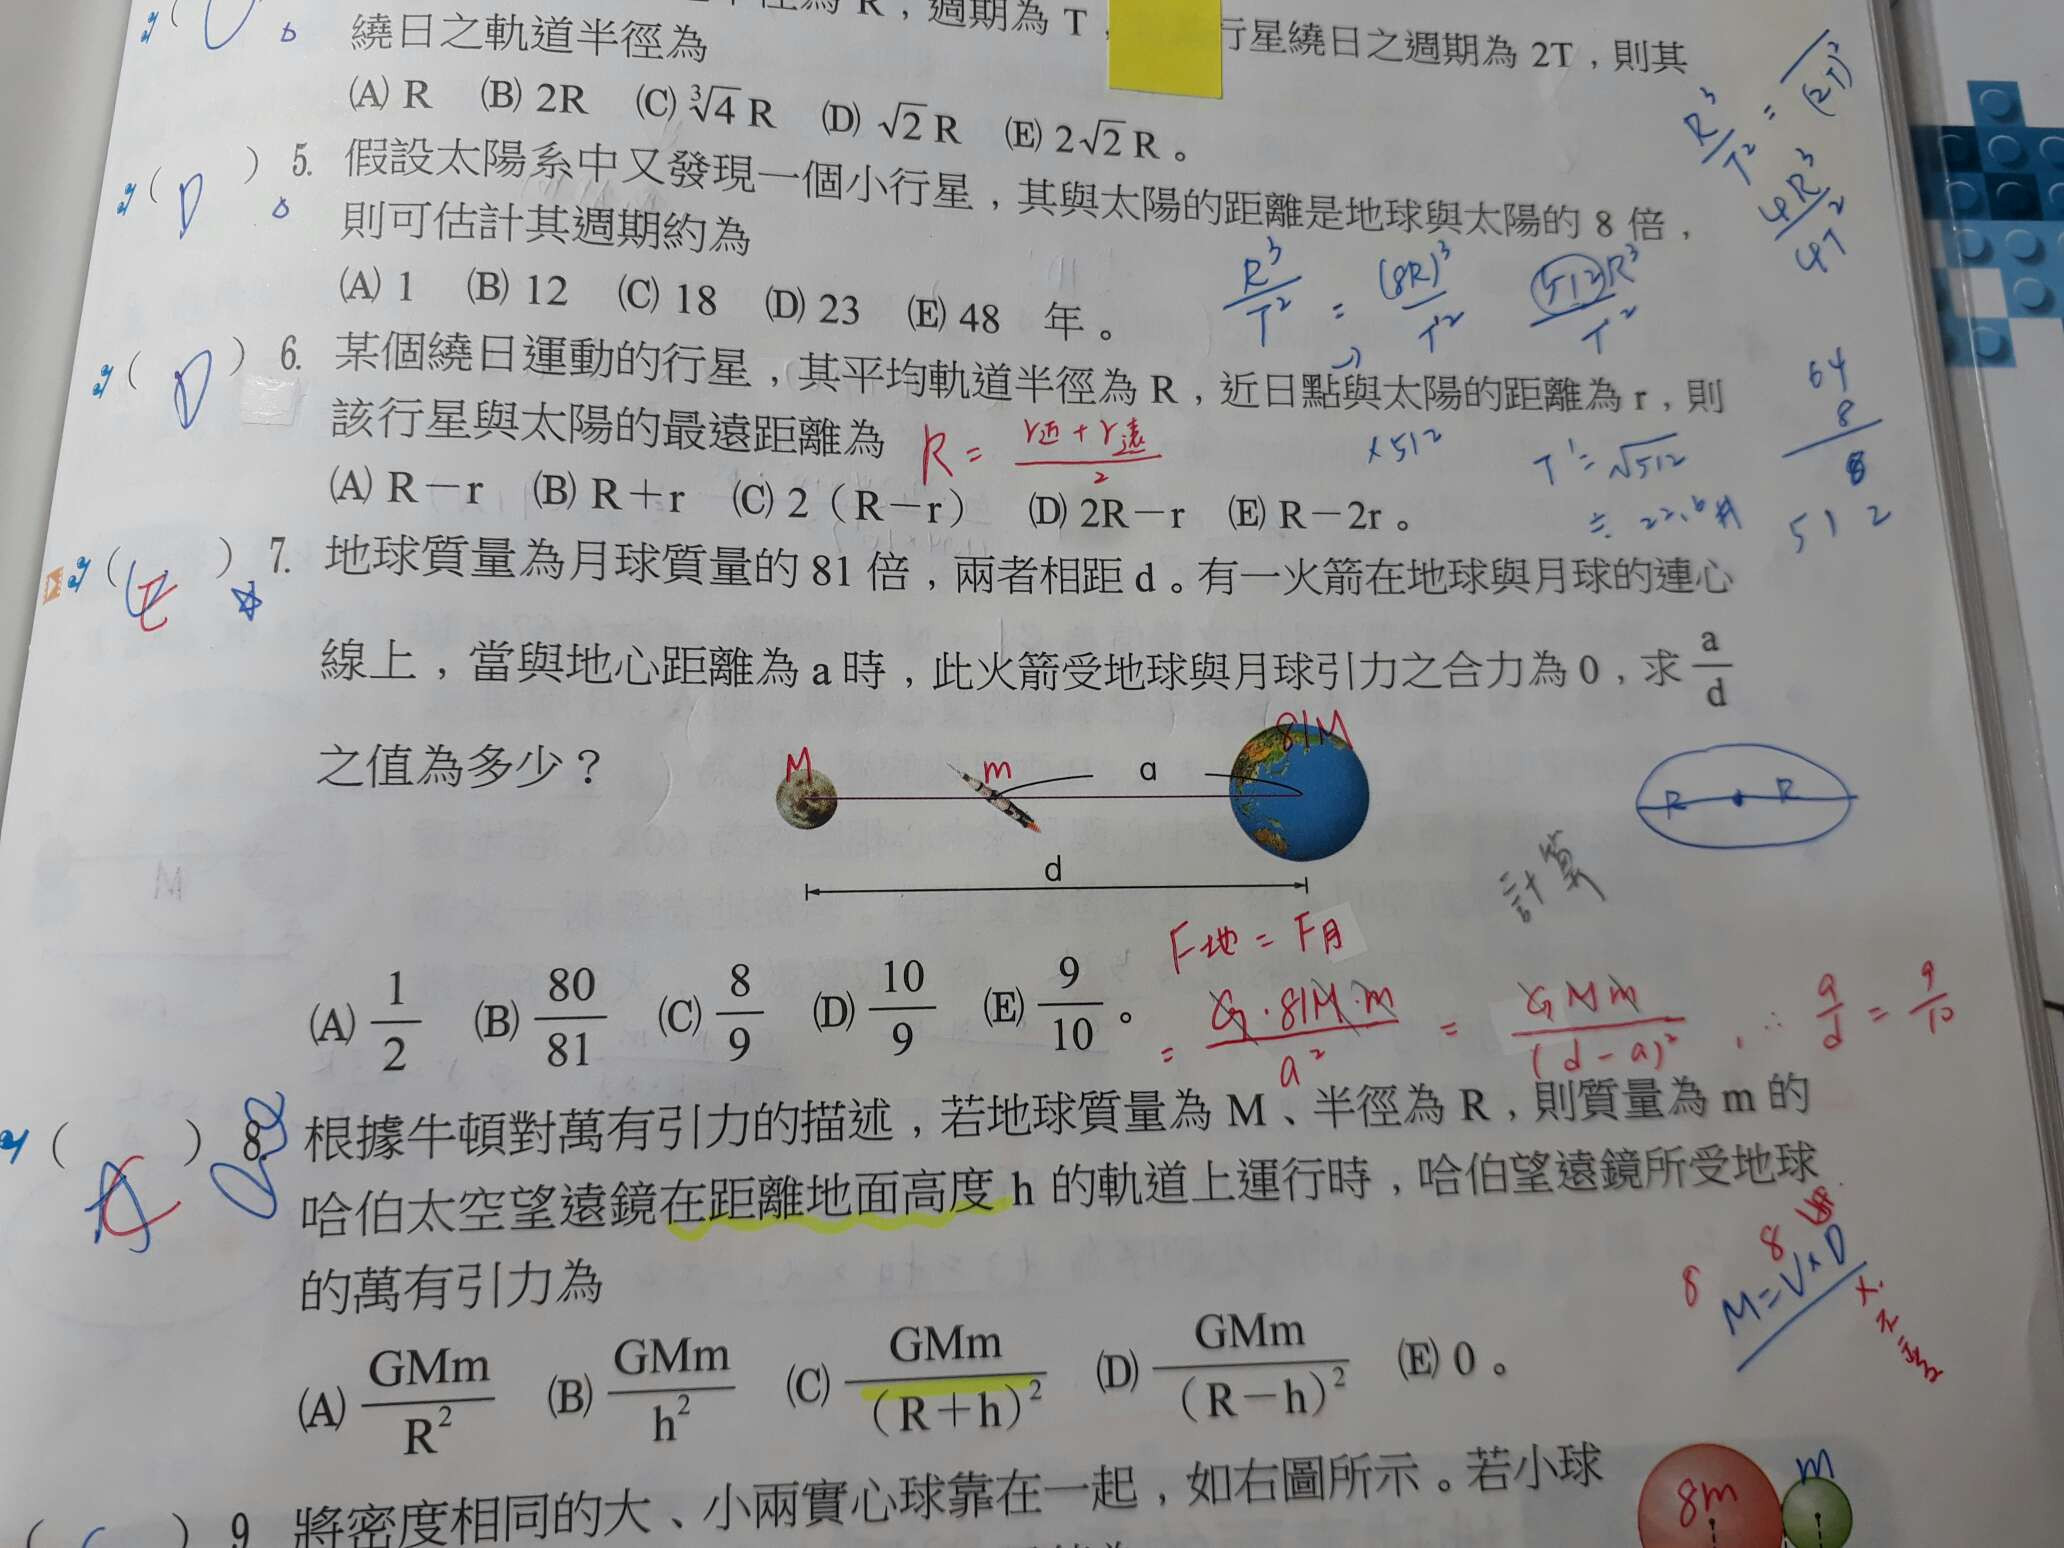 徑為 R，週期為 T，
行星繞日之週期為 2T，則其
繞日之軌道半徑為
(A) R (B) 2R (C) ∛4 R (D) √2 R (E) 2√2 R。
R³/T² = /(2T)²
4R³/4T²
( D ) 5. 假設太陽系中又發現一個小行星，其與太陽的距離是地球與太陽的 8 倍，
則可估計其週期約為
(A) 1 (B) 12 (C) 18 (D) 23 (E) 48 年。
R³/T² = (8R)³/T'² 512R³/T'²
( D ) 6. 某個繞日運動的行星，其平均軌道半徑為 R，近日點與太陽的距離為 r，則
該行星與太陽的最遠距離為
R = (r近 + r遠)/2
×512
T' = √512
≒ 22.6
64
8
512
(A) R－r (B) R＋r (C) 2（R－r） (D) 2R－r (E) R－2r。
( E ) 7. 地球質量為月球質量的 81 倍，兩者相距 d。有一火箭在地球與月球的連心
線上，當與地心距離為 a 時，此火箭受地球與月球引力之合力為 0，求 a/d
之值為多少？
M m a 81M
d
R R
計算
F地 = F月
(A) 1/2 (B) 80/81 (C) 8/9 (D) 10/9 (E) 9/10。
= G·81M·m/a² = GMm/(d-a)², ∴ a/d = 9/10
( ) 8. 根據牛頓對萬有引力的描述，若地球質量為 M、半徑為 R，則質量為 m 的
哈伯太空望遠鏡在距離地面高度 h 的軌道上運行時，哈伯望遠鏡所受地球
的萬有引力為
8 8
M=V×D
(A) GMm/R² (B) GMm/h² (C) GMm/（R＋h）² (D) GMm/（R－h）² (E) 0。
( ) 9 將密度相同的大、小兩實心球靠在一起，如右圖所示。若小球
8m m